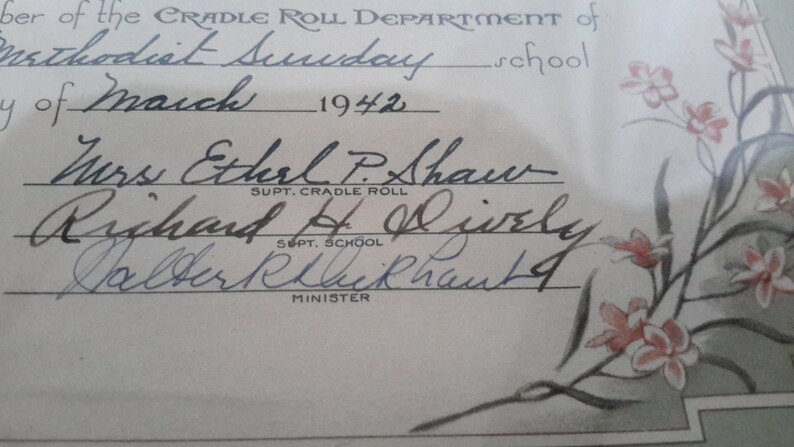 ber of the CRADLE ROLL DEPARTMENT of
Methodist Sunday school
y of March 1942
Mrs Ethel P. Shaw
SUPT. CRADLE ROLL
Richard H. Dively
SUPT. SCHOOL
Walter R
MINISTER